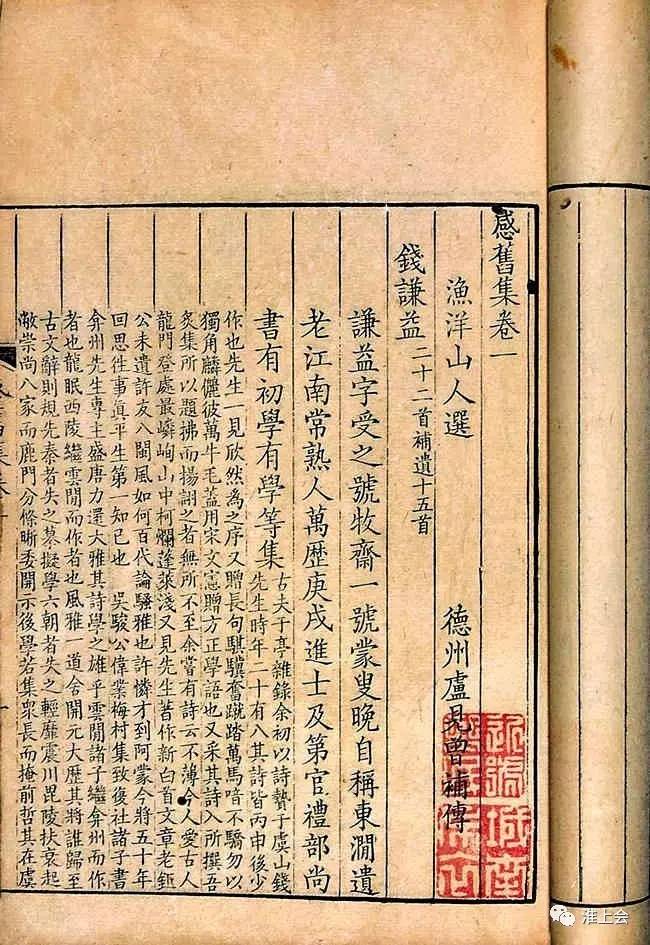 感舊集卷一
漁洋山人選
德州盧見曾補傳
錢謙益二十二首補遺十五首
謙益字受之號牧齋一號蒙叟晚自稱東澗遺
老江南常熟人萬歷庚戌進士及第官禮部尚
書有初學有學等集
古夫于亭雜錄余初以詩贄于虞山錢
先生時年二十有八其詩皆丙申後少
作也先生一見欣然為之序又贈長句騏驥奮蹴踏萬馬喑不驕勿以
獨角麟儷彼萬牛毛蓋用宋文憲贈方正學語也又采其詩入所撰吾
炙集所以題拂而揚詡之者無所不至余嘗有詩云不薄今人愛古人
龍門登處最嶙峋山中柯爛蓬萊淺又見先生著作新白首文章老鉅
公未遺許友八閩風如何百代論騷雅也許憐才到阿蒙今將五十年
回思往事真平生第一知己也
吳駿公偉業梅村集致復社諸子書
弇州先生專主盛唐力還大雅其詩學之雄乎雲間諸子繼弇州而作
者也龍眠西陵繼雲間而作者也風雅一道舍開元大歷其將誰歸至
古文辭則規先秦者失之摹擬學六朝者失之輕靡震川毘陵扶衰起
敝崇尚八家而鹿門分條晰委開示後學若集眾長而掩前哲其在虞
淮上会